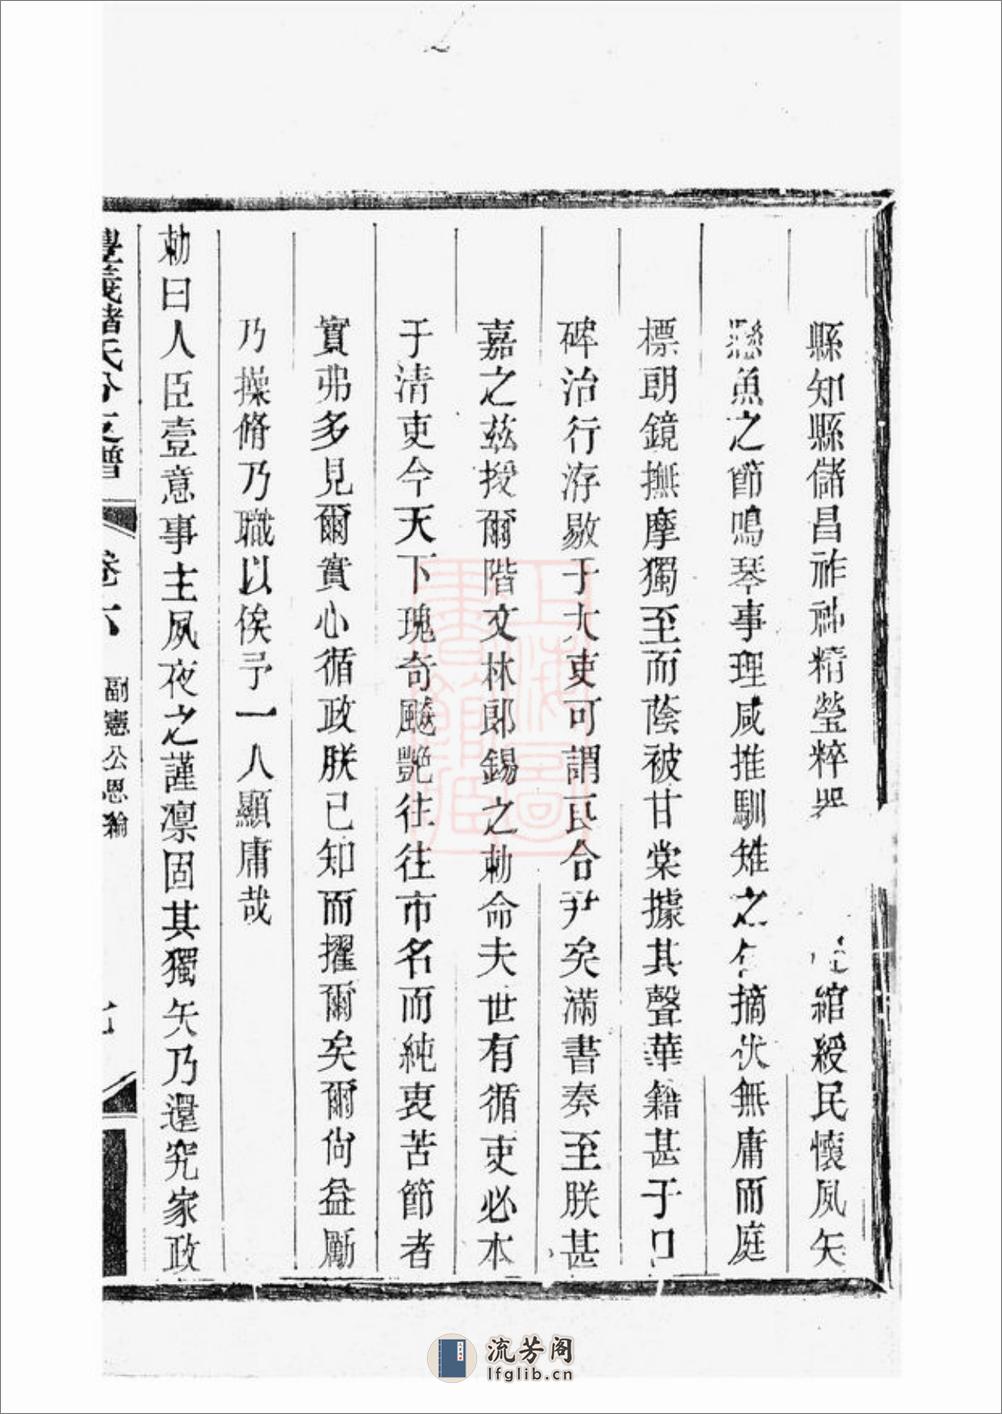 縣知縣儲昌祚神精瑩粹 綰綬民懷夙矢
懸魚之節鳴琴事理咸推馴雉之 摘伏無庸而庭
標朗鏡撫摩獨至而蔭被甘棠據其聲華籍甚于口
碑治行浮敭于大吏可謂良令尹矣滿書奏至朕甚
嘉之茲授爾階文林郎錫之勅命夫世有循吏必本
于清吏今天下瑰奇飈艷往往市名而純衷苦節者
實弗多見爾實心循政朕已知而擢爾矣爾尙益勵
乃操脩乃職以俟予一人顯庸哉
勅曰人臣壹意事主夙夜之謹凛固其獨矢乃還究家政
豐義儲氏分支譜 卷六 副憲公恩綸 七
上海圖書館藏
流芳阁
lfglib.cn